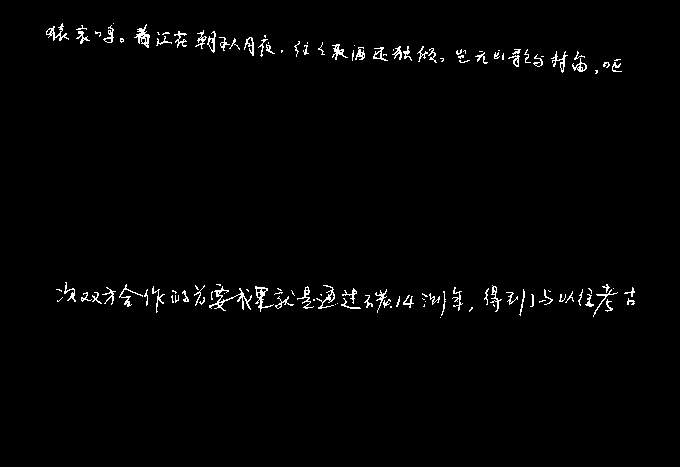 猿哀鸣。春江花朝秋月夜，往往取酒还独倾。岂无山歌与村笛，呕
次双方合作的首要成果就是通过碳14测年，得到了与以往考古